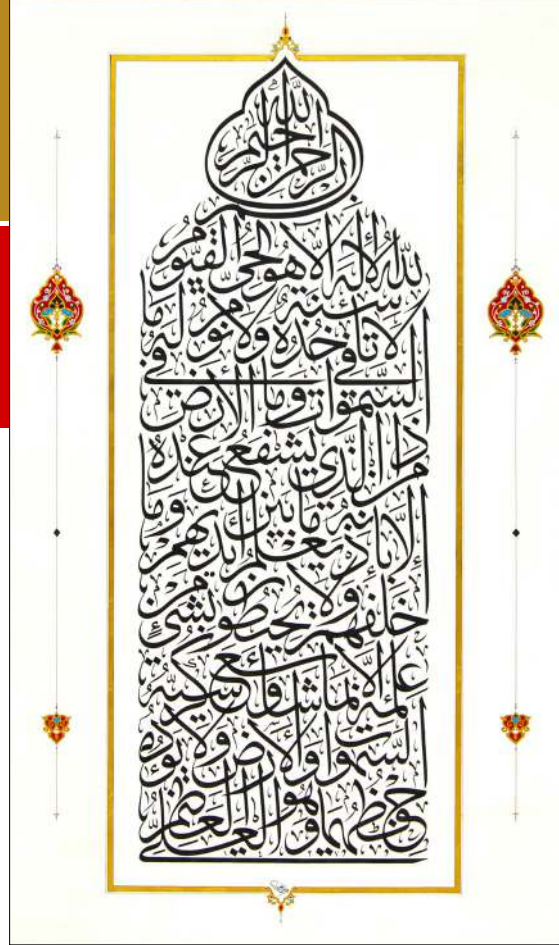 بسم الله الرحمن الرحيم
الله لا إله إلا هو الحي القيوم
لا تأخذه سنة ولا نوم له ما في
السموات وما في الأرض
من ذا الذي يشفع عنده
إلا بإذنه يعلم ما بين أيديهم وما
خلفهم ولا يحيطون بشيء من
علمه إلا بما شاء وسع كرسيه
السموات والأرض ولا يؤده
حفظهما وهو العلي العظيم